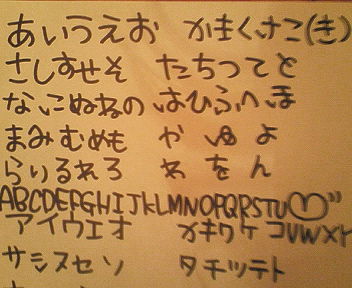 あいうえお かまくけこ(き)
さしすせそ たちつてと
なにぬねの はひふへほ
まみむめも や ゆ よ
らりるれろ わ を ん
ABCDEFGHIJKLMNOPQRSTU♡”
アイウエオ カキクケコVWXY
サシスセソ タチツテト